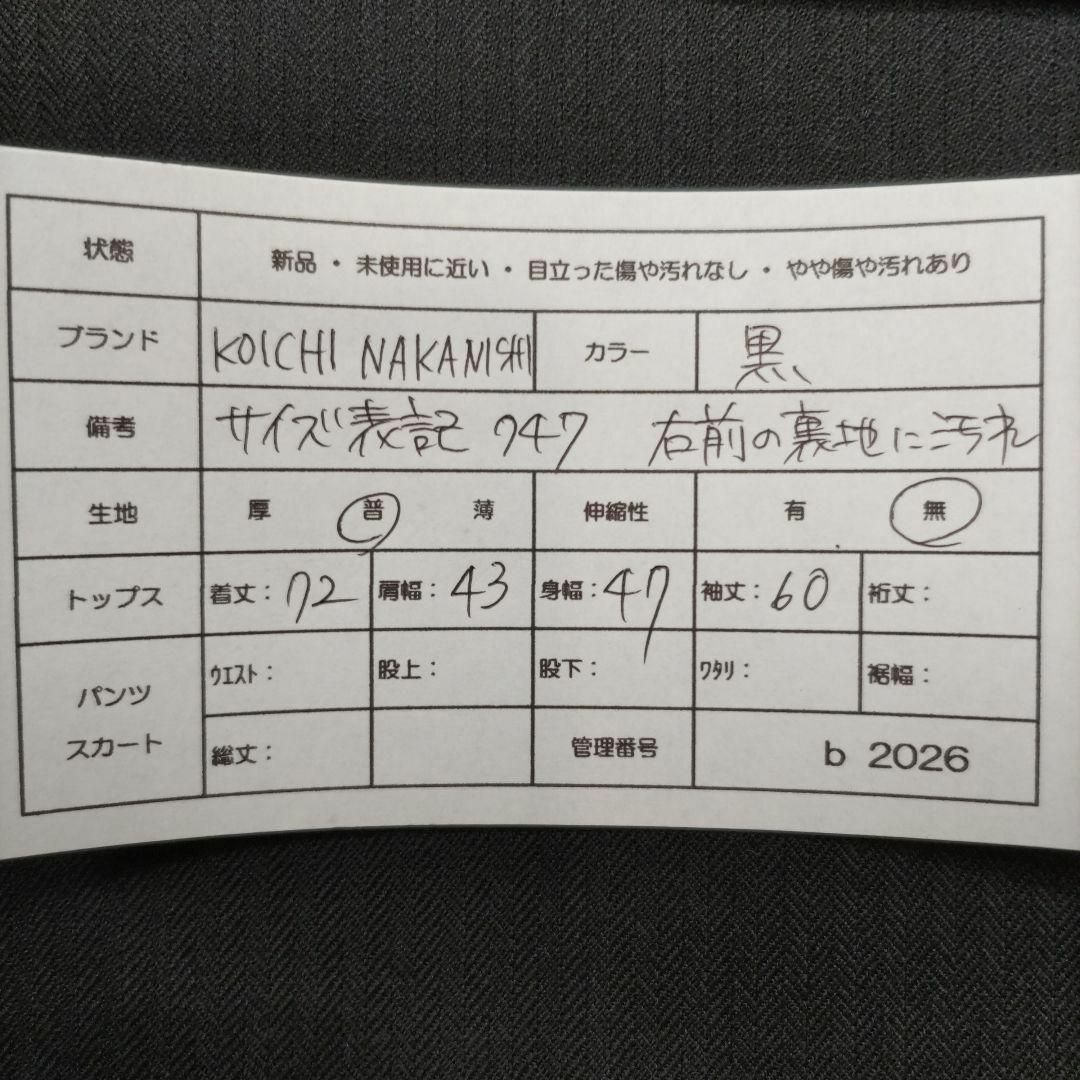 状態 新品 ・ 未使用に近い ・ 目立った傷や汚れなし ・ やや傷や汚れあり
ブランド KOICHI NAKANISHI カラー 黒
備考 サイズ表記 747 右前の裏地に汚れ
生地 厚 普 薄 伸縮性 有 無
トップス 着丈：72 肩幅：43 身幅：47 袖丈：60 裄丈：
パンツ スカート ウエスト： 股上： 股下： ワタリ： 裾幅：
総丈： 管理番号 b 2026